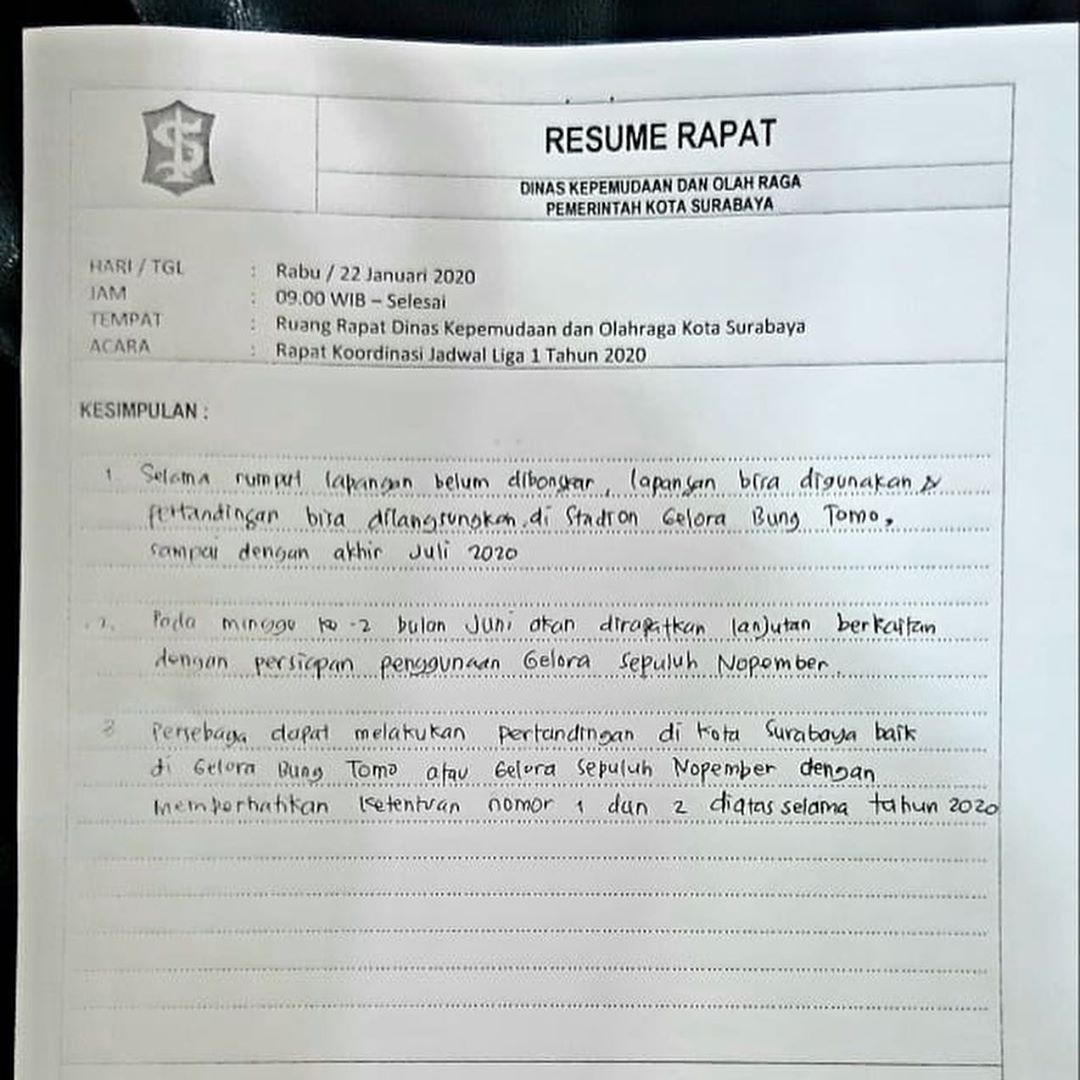 RESUME RAPAT
DINAS KEPEMUDAAN DAN OLAH RAGA
PEMERINTAH KOTA SURABAYA
HARI / TGL : Rabu / 22 Januari 2020
JAM : 09.00 WIB – Selesai
TEMPAT : Ruang Rapat Dinas Kepemudaan dan Olahraga Kota Surabaya
ACARA : Rapat Koordinasi Jadwal Liga 1 Tahun 2020
KESIMPULAN :
1. Selama rumput lapangan belum dibongkar, lapangan bisa digunakan &
pertandingan bisa dilangsungkan di Stadion Gelora Bung Tomo,
sampai dengan akhir Juli 2020
2. Pada minggu ke-2 bulan Juni akan dirapatkan lanjutan berkaitan
dengan persiapan penggunaan Gelora Sepuluh Nopember.
3 Persebaya dapat melakukan pertandingan di Kota Surabaya baik
di Gelora Bung Tomo atau Gelora Sepuluh Nopember dengan
memperhatikan ketentuan nomor 1 dan 2 diatas selama tahun 2020